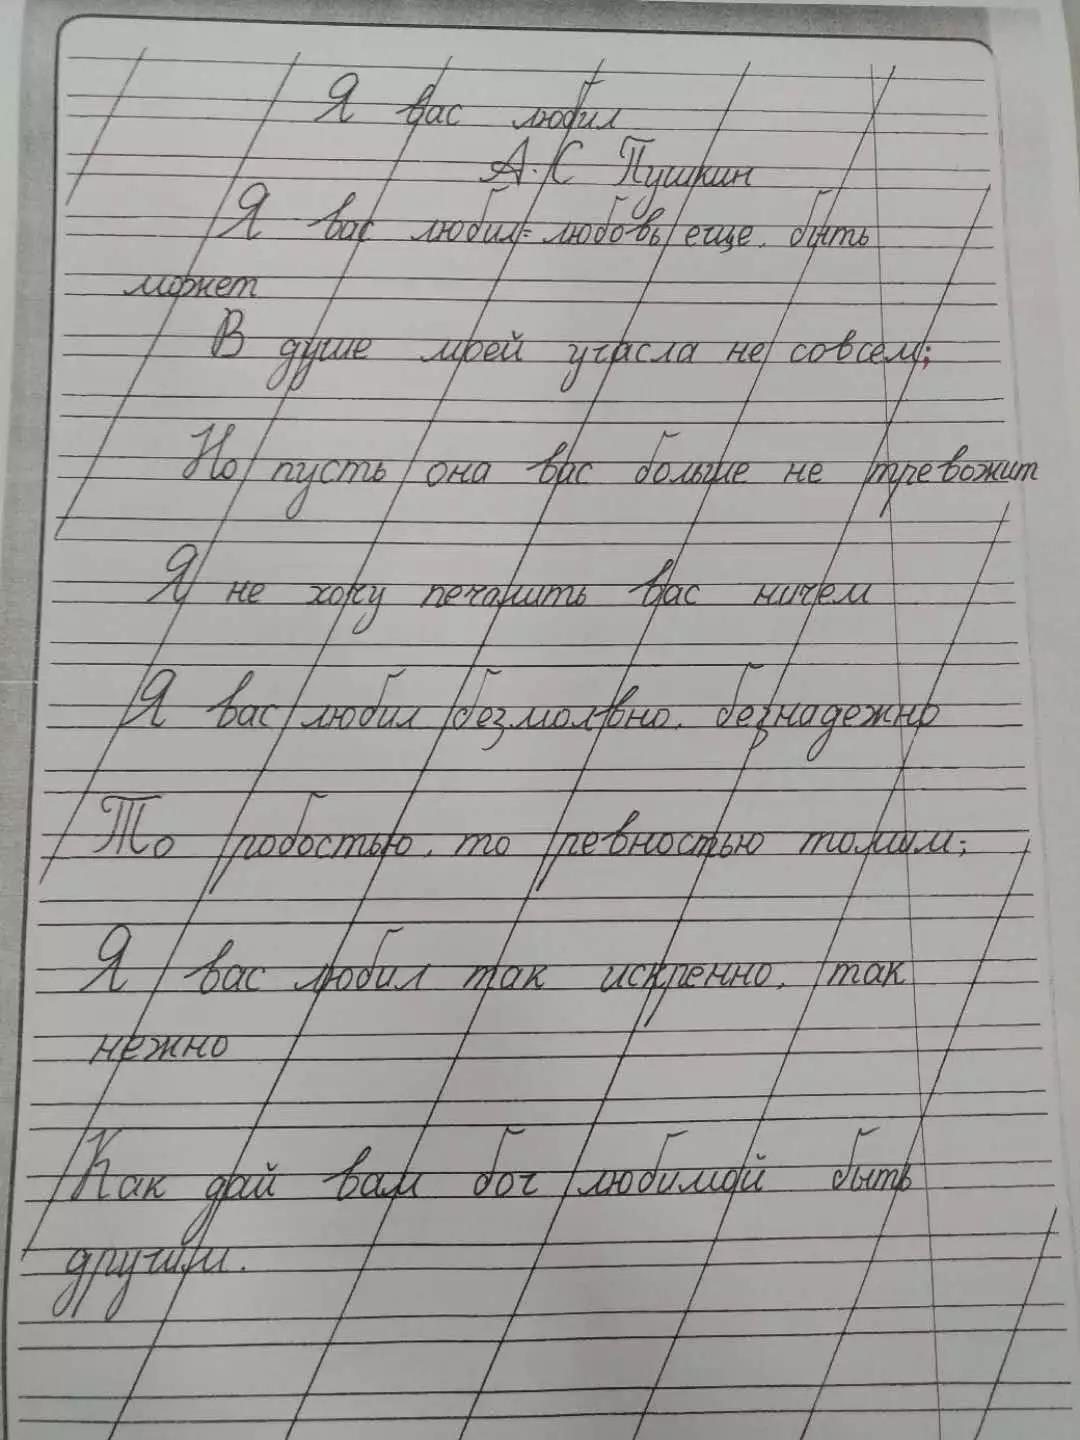 Я вас любил
А.С Пушкин
Я вас любил: любовь еще. быть
может
В душе моей угасла не совсем;
Но пусть она вас больше не тревожит
Я не хочу печалить вас ничем
Я вас любил безмолвно. безнадежно
То робостью. то ревностью томим;
Я вас любил так искренно. так
нежно
Как дай вам бог любимой быть
другим.